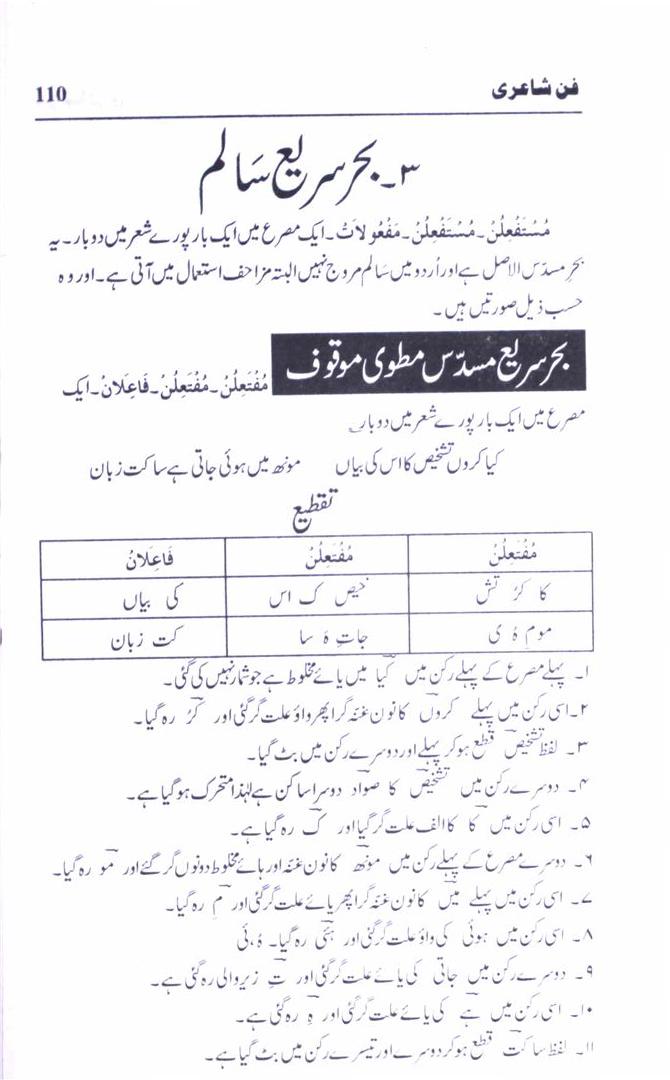 فن شاعری 110
۳۔ بحر سریع سَالم
مُسْتَفْعِلُنْ۔ مُسْتَفْعِلُنْ۔ مَفْعُولَاتُ۔ ایک مصرع میں ایک بار پورے شعر میں دو بار۔ یہ
بحرِ مسدّس الاصل ہے اور اُردو میں سَالم مروج نہیں البتہ مزاحف استعمال میں آتی ہے۔ اور وہ
حسب ذیل صورتیں ہیں۔
بحر سریع مسدّس مطوی موقوف مُفْتَعِلُنْ۔ مُفْتَعِلُنْ۔ فَاعِلَانُ۔ ایک
مصرع میں ایک بار پورے شعر میں دو بار۔
کیا کروں تشخیص کا اس کی بیاں مونھ میں ہوئی جاتی ہے ساکت زبان
تقطیع
مُفْتَعِلُنْ مُفْتَعِلُنْ فَاعِلَانُ
کا کرُ تش خیص کَ اس کی بیاں
موم ہُ ی جاتِ ہَ سا کت زبان
۱۔ پہلے مصرع کے پہلے رکن میں کیا میں یائے مخلوط ہے جو شمار نہیں کی گئی۔
۲۔ اسی رکن میں پہلے کروں کا نون غنّہ گرا پھر واؤ علت گر گئی اور کرُ رہ گیا۔
۳۔ لفظ تشخیص قطع ہو کر پہلے اور دوسرے رکن میں بٹ گیا۔
۴۔ دوسرے رکن میں تشخیص کا صواد دوسرا ساکن ہے لہٰذا متحرک ہو گیا ہے۔
۵۔ اسی رکن میں کا کا الف علت گر گیا اور کَ رہ گیا ہے۔
۶۔ دوسرے مصرع کے پہلے رکن میں مونھ کا نون غنّہ اور ہائے مخلوط دونوں گر گئے اور مو رہ گیا۔
۷۔ اسی رکن میں پہلے میں کا نون غنّہ گرا پھر یائے علت گر گئی اور مِ رہ گیا۔
۸۔ اسی رکن میں ہوئی کی واؤ علت گر گئی اور ہُئی رہ گیا۔ ہُ، ئی
۹۔ دوسرے رکن میں جاتی کی یائے علت گر گئی اور تِ زیر والی رہ گئی ہے۔
۱۰۔ اسی رکن میں ہے کی یائے علت گر گئی اور ہَ رہ گئی ہے۔
۱۱۔ لفظ ساکت قطع ہو کر دوسرے اور تیسرے رکن میں بٹ گیا ہے۔